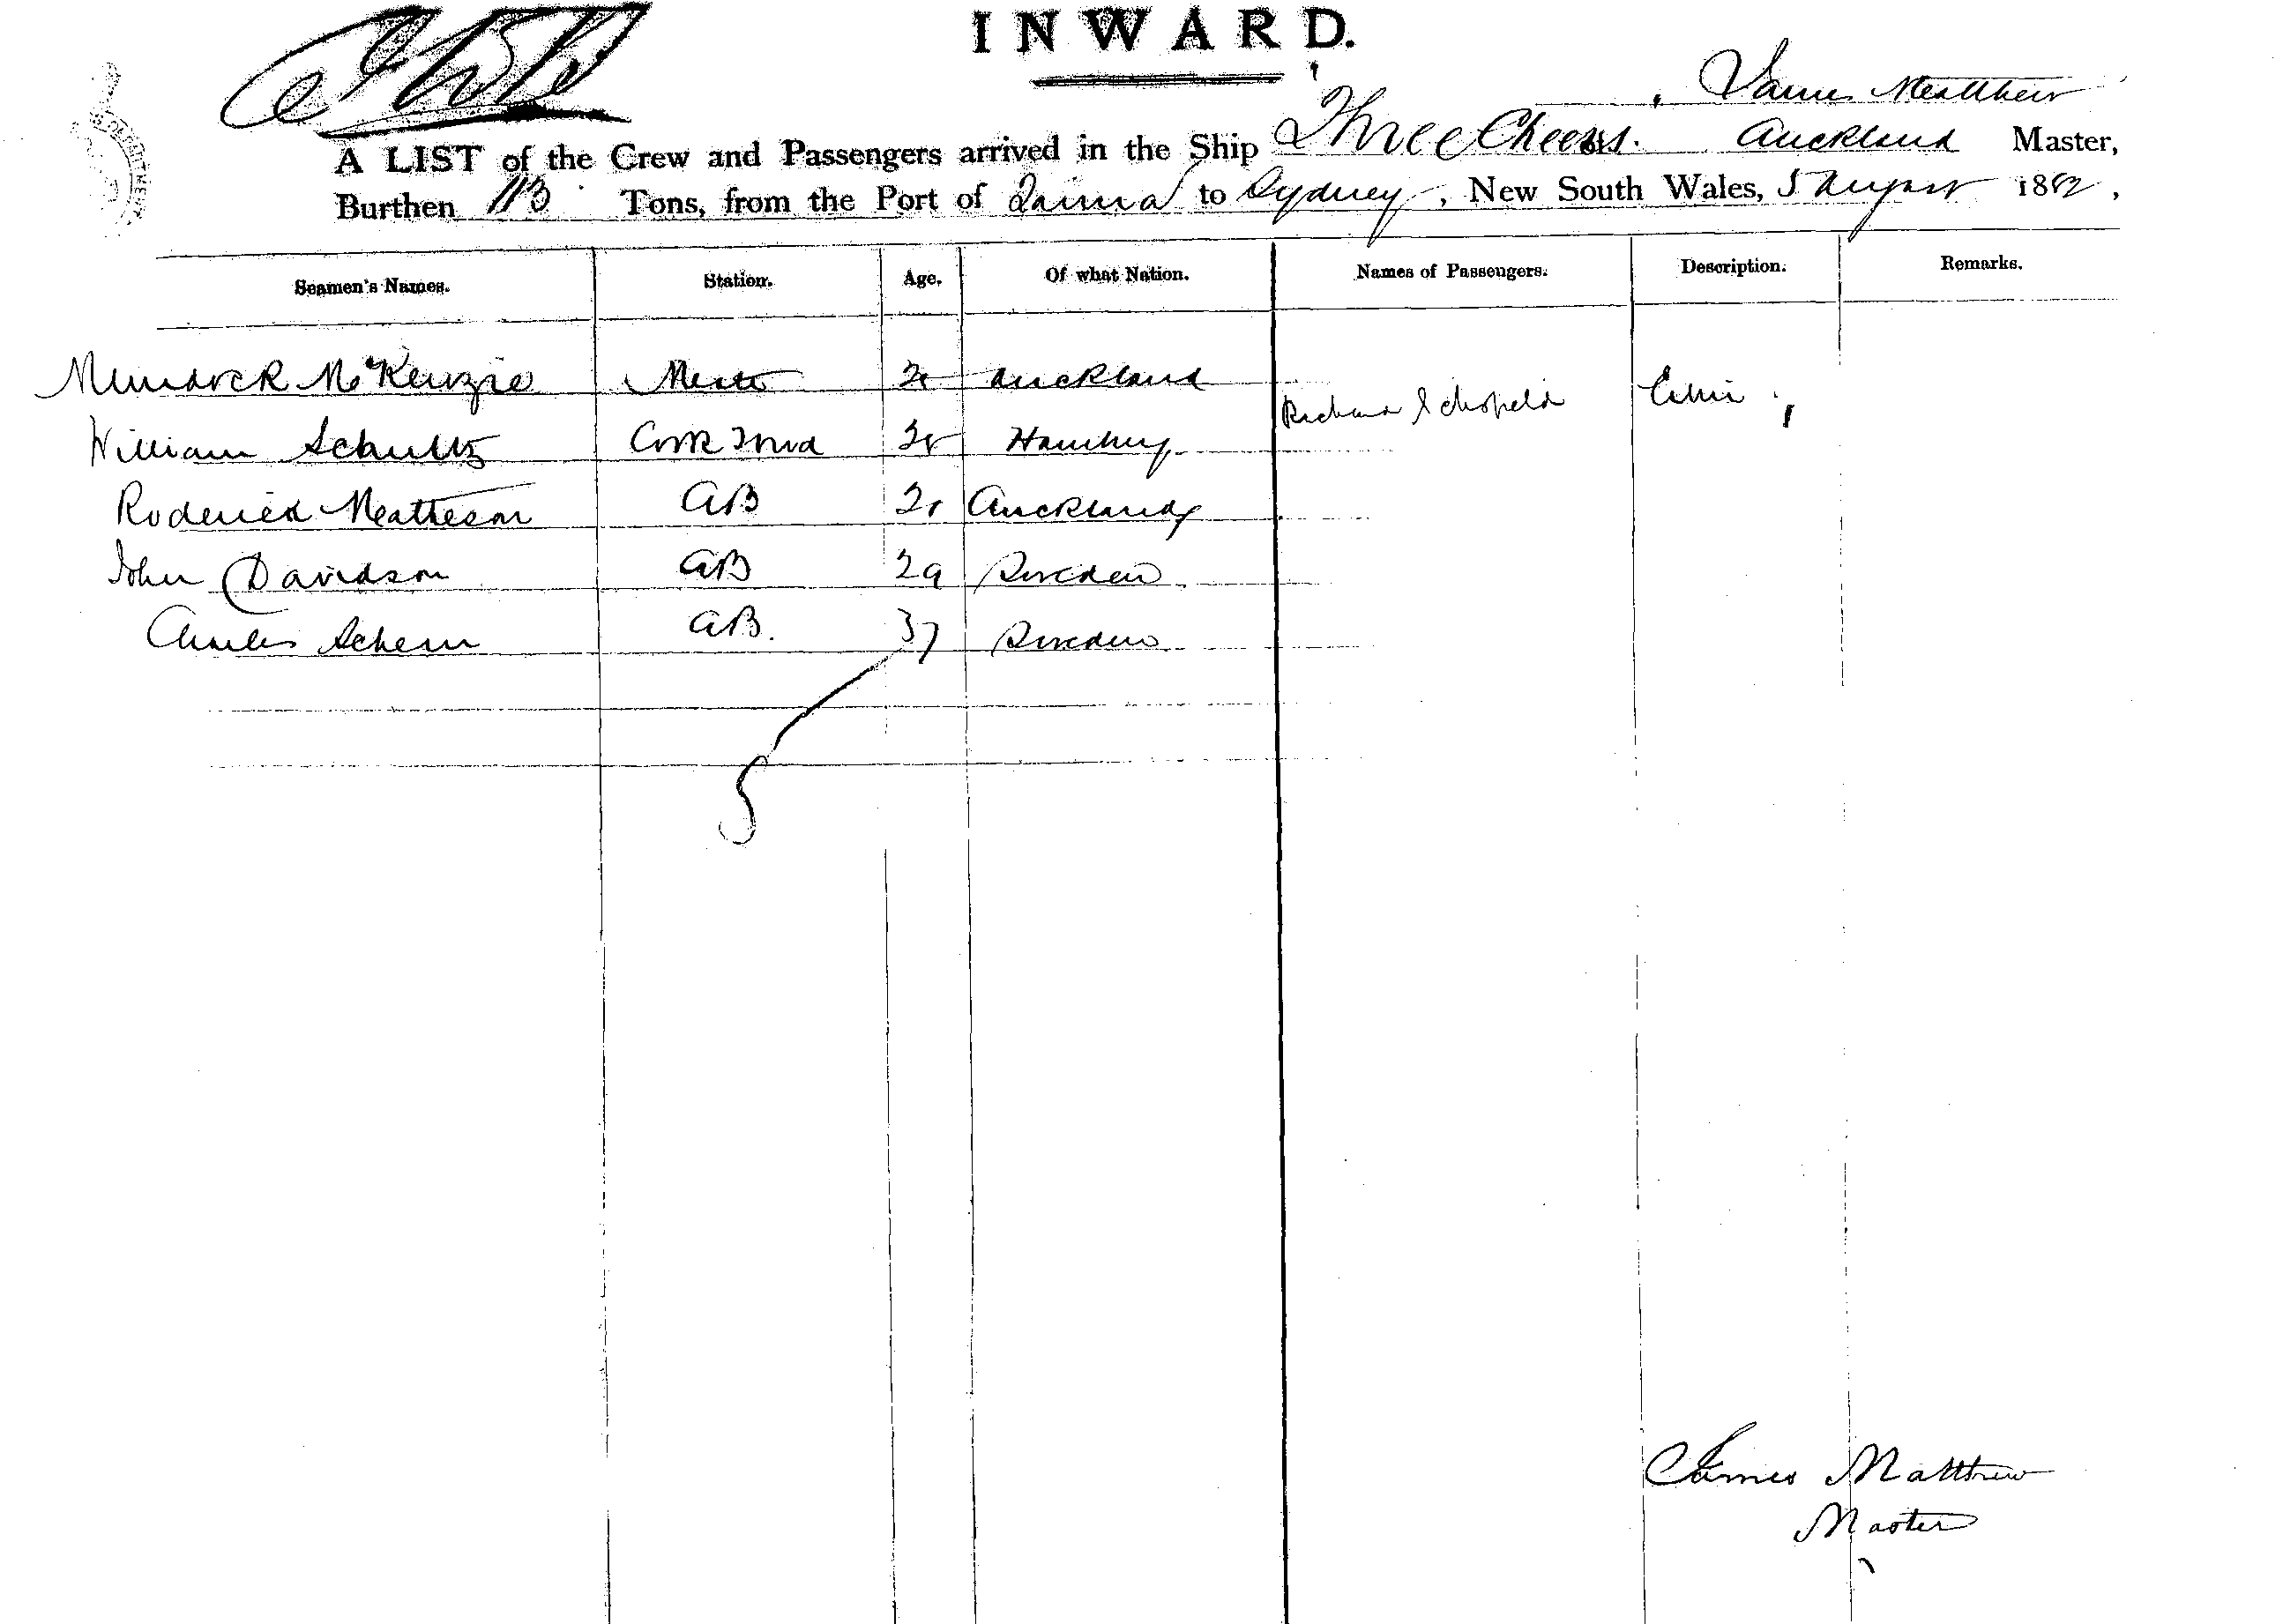 INWARD.
James Matthew
A LIST of the Crew and Passengers arrived in the Ship Three Cheers. Auckland Master,
Burthen 113 Tons, from the Port of to Sydney, New South Wales, 5 August 1882,
Seamen's Names. Station. Age. Of what Nation. Names of Passengers. Description. Remarks.
Murdock McKenzie Mate Auckland
Richard Schofield
William Schultz Cook Hamburg
Roderick Matheson AB Auckland
John Davidson AB 29 Sweden
Charles AB. 37 Sweden
5
James Matthew
Master